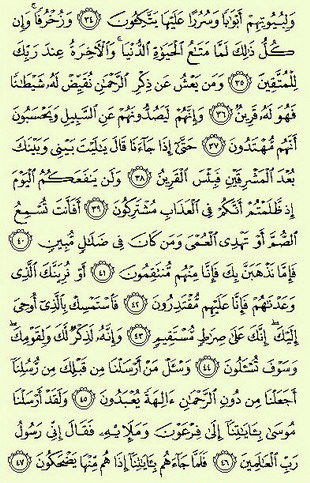 وَلِبُيُوتِهِمْ أَبْوَٰبًا وَسُرُرًا عَلَيْهَا يَتَّكِـُٔونَ ٣٤ وَزُخْرُفًا ۚ وَإِن
كُلُّ ذَٰلِكَ لَمَّا مَتَـٰعُ ٱلْحَيَوٰةِ ٱلدُّنْيَا ۚ وَٱلْـَٔاخِرَةُ عِندَ رَبِّكَ
لِلْمُتَّقِينَ ٣٥ وَمَن يَعْشُ عَن ذِكْرِ ٱلرَّحْمَـٰنِ نُقَيِّضْ لَهُۥ شَيْطَـٰنًا
فَهُوَ لَهُۥ قَرِينٌ ٣٦ وَإِنَّهُمْ لَيَصُدُّونَهُمْ عَنِ ٱلسَّبِيلِ وَيَحْسَبُونَ
أَنَّهُم مُّهْتَدُونَ ٣٧ حَتَّىٰٓ إِذَا جَآءَنَا قَالَ يَـٰلَيْتَ بَيْنِى وَبَيْنَكَ
بُعْدَ ٱلْمَشْرِقَيْنِ فَبِئْسَ ٱلْقَرِينُ ٣٨ وَلَن يَنفَعَكُمُ ٱلْيَوْمَ
إِذ ظَّلَمْتُمْ أَنَّكُمْ فِى ٱلْعَذَابِ مُشْتَرِكُونَ ٣٩ أَفَأَنتَ تُسْمِعُ
ٱلصُّمَّ أَوْ تَهْدِى ٱلْعُمْىَ وَمَن كَانَ فِى ضَلَـٰلٍ مُّبِينٍ ٤٠
فَإِمَّا نَذْهَبَنَّ بِكَ فَإِنَّا مِنْهُم مُّنتَقِمُونَ ٤١ أَوْ نُرِيَنَّكَ ٱلَّذِى
وَعَدْنَـٰهُمْ فَإِنَّا عَلَيْهِم مُّقْتَدِرُونَ ٤٢ فَٱسْتَمْسِكْ بِٱلَّذِىٓ أُوحِىَ
إِلَيْكَ ۖ إِنَّكَ عَلَىٰ صِرَٰطٍ مُّسْتَقِيمٍ ٤٣ وَإِنَّهُۥ لَذِكْرٌ لَّكَ وَلِقَوْمِكَ ۖ
وَسَوْفَ تُسْـَٔلُونَ ٤٤ وَسْـَٔلْ مَنْ أَرْسَلْنَا مِن قَبْلِكَ مِن رُّسُلِنَآ
أَجَعَلْنَا مِن دُونِ ٱلرَّحْمَـٰنِ ءَالِهَةً يُعْبَدُونَ ٤٥ وَلَقَدْ أَرْسَلْنَا
مُوسَىٰ بِـَٔايَـٰتِنَآ إِلَىٰ فِرْعَوْنَ وَمَلَإِي۟هِۦ فَقَالَ إِنِّى رَسُولُ
رَبِّ ٱلْعَـٰلَمِينَ ٤٦ فَلَمَّا جَآءَهُم بِـَٔايَـٰتِنَآ إِذَا هُم مِّنْهَا يَضْحَكُونَ ٤٧